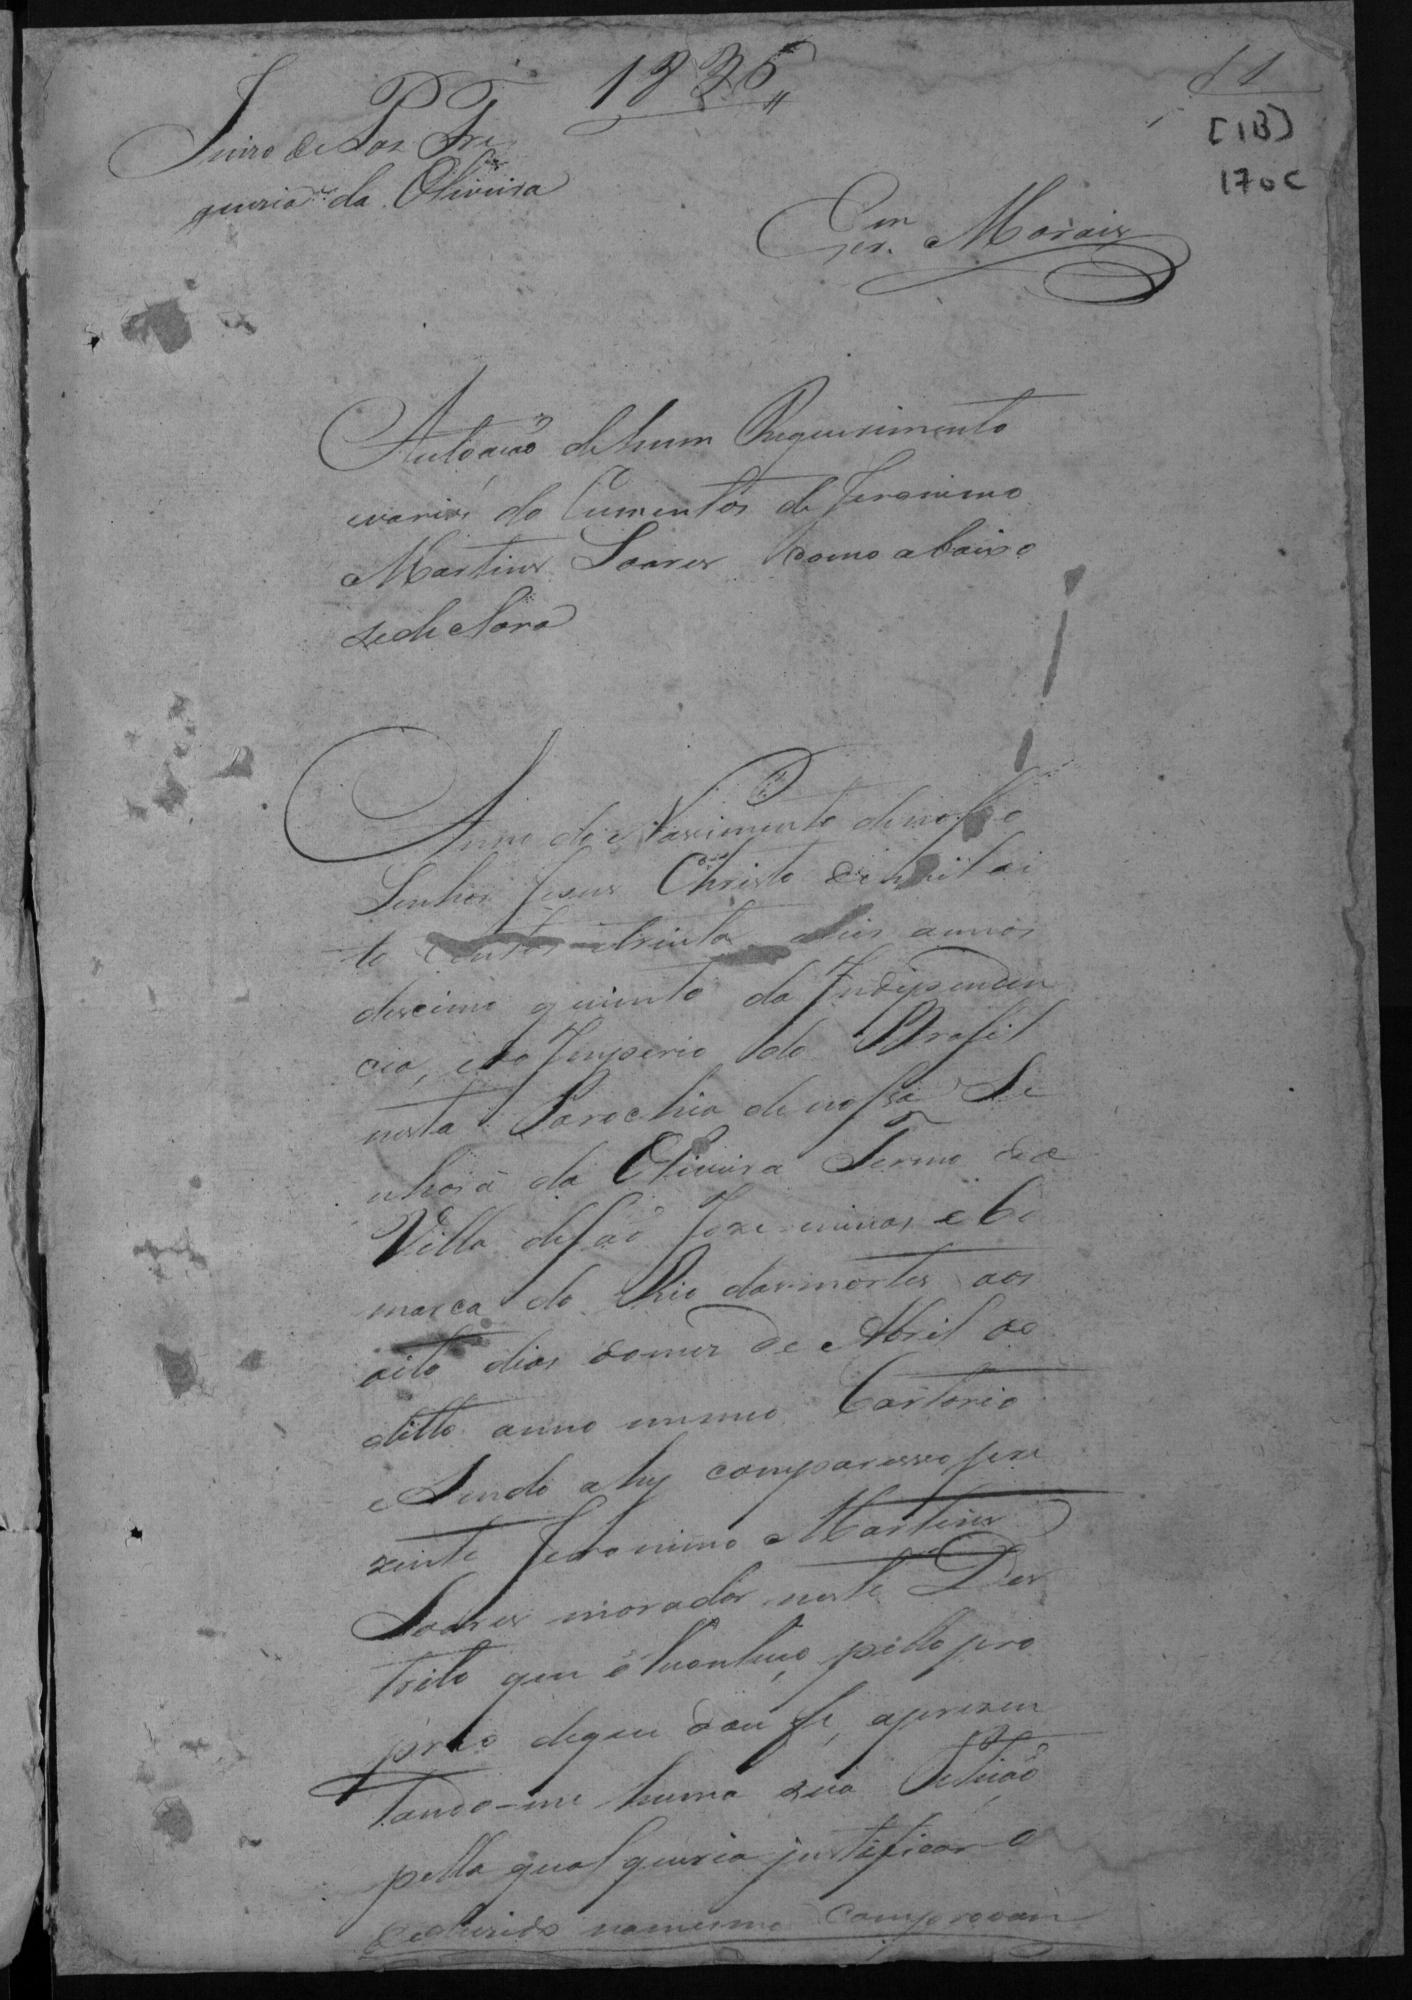 1836
11
[1B]
170C
Juizo de Pas Fre
guezia da Oliveira
Esm Morais
Autoação de hum Requerimento
evarios do Cumentos de Jeronimo
Martins Soares como abaixo
sedeclara
Anno do Nascimento denosso
Senhor Jesus Christo de mil oi
to centos etrinta eseis annos
descimo quinto da Independen
cia, edo Imperio do Brasil
nesta Parochia denossa Se
nhora da Oliveira Termo da
Villa desaõ Joze minas e Co
marca do Rio dasmortes aos
oito dias domes de Abril do
ditto anno emmeo Cartorio
e Sendo ahy comparesseo pre
zente Jeronimo Martins
Soares morador neste Des
trito que o conheço pello pro
prio dequè dou fe, aprezen
tando-me huma sua Petiçaõ
pella qual queria justificar o
deduzido namesma comprovan